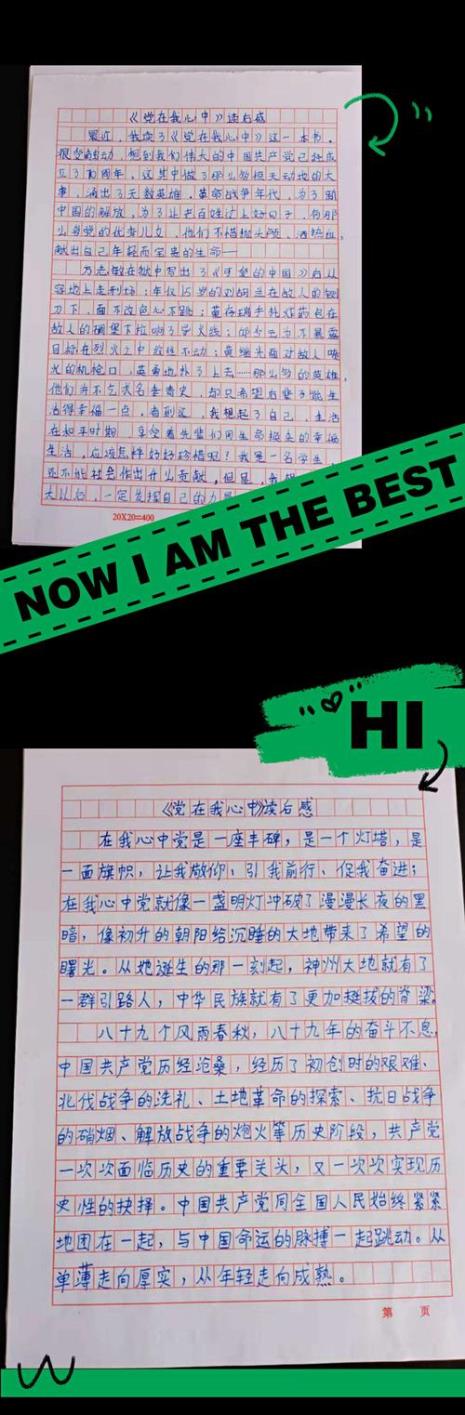 《党在我心中》读后感
最近，我读了《党在我心中》这一本书，
很受感动，想到我们伟大的中国共产党已经成
立了90周年，这其中做了那么多惊天动地的大
事，涌出了无数英雄，革命战争年代，为了新
中国的解放，为了让老百姓过上好日子，有那
么多党的优秀儿女，他们不惜抛头颅，洒热血，
献出自己年轻而宝贵的生命——
方志敏在狱中写出了《可爱的中国》后从
容地上走刑场；年仅15岁的刘胡兰在敌人的铡
刀下，面不改色心不跳；董存瑞手托炸药包在
敌人的碉堡下拉响了导火线；邱少云为不暴露
目标在烈火之中纹丝不动；黄继光面对敌人喷
火的机枪口，英勇地扑了上去……那么多的英雄，
他们并不乞求名垂青史，却只希望后辈了能生
活得幸福一点，看到这，我想起了自己，生活
在和平时期，享受着先辈们用生命换来的幸福
生活，应该怎样好好珍惜呢？我是一名学生，
还不能社会作出什么贡献，但是，我
天以后，一定发挥自己的力量
20X20=400
NOW I AM THE BEST
HI
《党在我心中》读后感
在我心中党是一座丰碑，是一个灯塔，是
一面旗帜，让我敬仰、引我前行、促我奋进；
在我心中党就像一盏明灯冲破了漫漫长夜的黑
暗，像初升的朝阳给沉睡的大地带来了希望的
曙光。从她诞生的那一刻起，神州大地就有了
一群引路人，中华民族就有了更加挺拔的脊梁。
八十九个风雨春秋，八十九年的奋斗不息，
中国共产党历经沧桑，经历了初创时的艰难、
北伐战争的洗礼、土地革命的探索、抗日战争
的硝烟、解放战争的炮火等历史阶段，共产党
一次次面临历史的重要关头，又一次次实现历
史性的抉择。中国共产党同全国人民始终紧紧
地团在一起，与中国命运的脉搏一起跳动。从
单薄走向厚实，从年轻走向成熟。
第 页